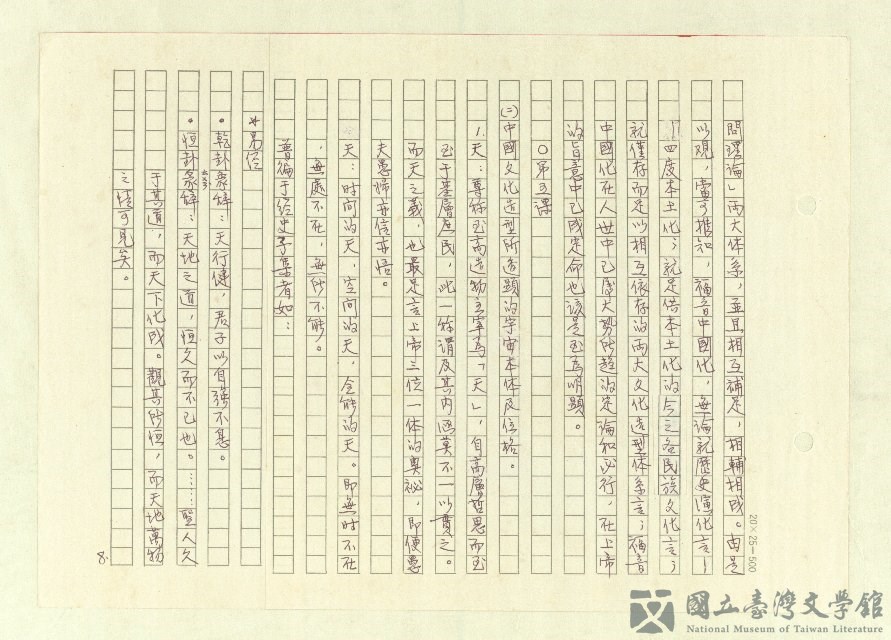 問環論」兩大体系，並且相互補足，相輔相成。由是
以观，當可推知，福音中國化，無論就歷史演化言；
四度本土化；就是借本土化的今之各民族文化言；
就僅存而足以相互依存的兩大文化造型体系言；福音
中國化在人世中已成大勢所趨的定論和必行，在上帝
的旨意中已成定命也該是至為明顯。
○第3課
㈡中國文化造型所造顯的宇宙本体及位格。
1.天：尊称至高造物主宰為「天」，自高層哲思而至
至于基層庶民，此一称谓及其内涵莫不一以貫之。
而天之義，也最足言上帝三位一体的奧祕，即便愚
夫愚婦亦信亦悟。
天：时间的天，空间的天，全能的天。即無时不在
，無處不在，無所不能。
普徧于经史子集者如：
*易经
•乾卦象辞：天行健，君子以自强不息。
•恒卦彖辞：天地之道，恒久而不已也。……聖人久
于其道，而天下化成。觀其所恒，而天地萬物
之情可見矣。
8.
20×25=500
國立臺灣文学館
National Museum of Taiwan Literature